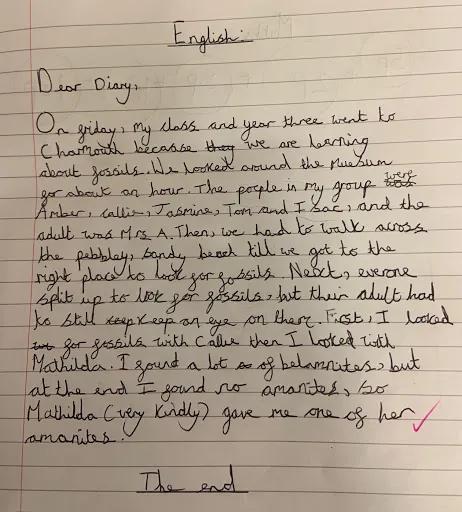 English:
Dear Diary,
On friday, my class and year three went to
Charmouth because they we are lerning
about fossils. We looked around the Muesum
for about an hour. The people in my group were was
Amber, callie, Jasmine, Tom and I sac, and the
adult was Mrs A. Then, we had to walk across
the pebbley, sandy beach till we got to the
right place to look for fossils. Next, everone
split up to look for fossils, but their adult had
to still keep keep an eye on them. First, I looked
for fossils with Callie then I looked with
Mathilda. I found a lot of belamnites, but
at the end I found no amanites, so
Mathilda (very kindly) gave me one of her
amanites.
The end